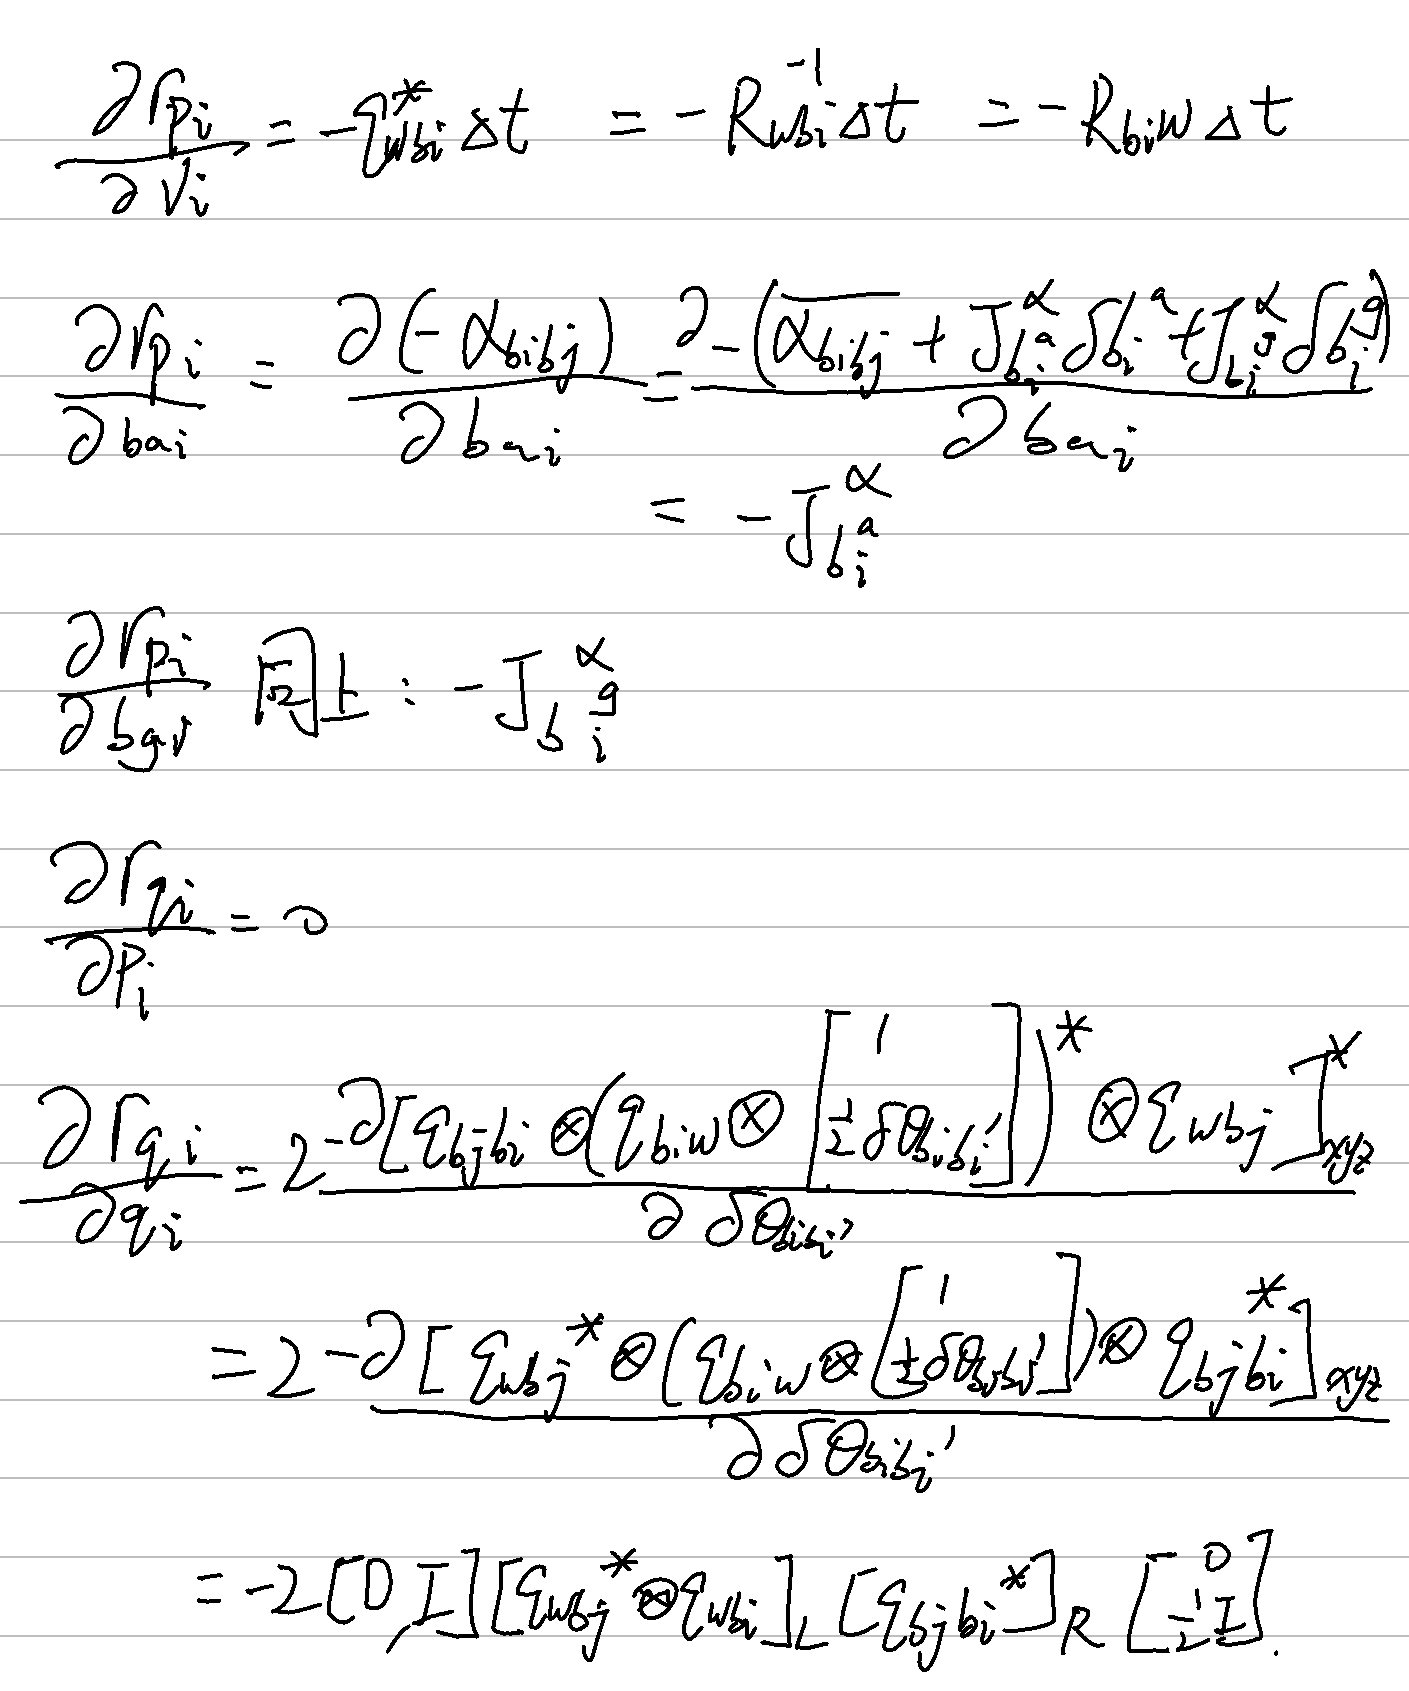 ∂r_{p_i}/∂v_i = -q^*_{wb_i} Δt = -R^{-1}_{wb_i} Δt = -R_{b_i w} Δt
∂r_{p_i}/∂ba_i = ∂(-α_{b_i b_j})/∂ba_i = ∂-(\overline{α_{b_i b_j}} + J^α_{b_i^a} δb_i^a + J^α_{b_i^g} δb_i^g)/∂ba_i
= -J^α_{b_i^a}
∂r_{p_i}/∂bg_i 同上: -J^α_{b_i^g}
∂r_{q_i}/∂P_i = 0
∂r_{q_i}/∂q_i = 2 -∂[q_{b_j b_i} ⊗ (q_{b_i w} ⊗ [1; 1/2 δθ_{b_i b_i'}])^* ⊗ q_{wb_j}]^*_{xyz}/∂δθ_{b_i b_i'}
= 2 -∂[q_{wb_j}^* ⊗ (q_{b_i w} ⊗ [1; 1/2 δθ_{b_i b_i'}]) ⊗ q_{b_j b_i}^*]_{xyz}/∂δθ_{b_i b_i'}
= -2 [0, I] [q_{wb_j}^* ⊗ q_{wb_i}]_L [q_{b_j b_i}^*]_R [0; 1/2 I].